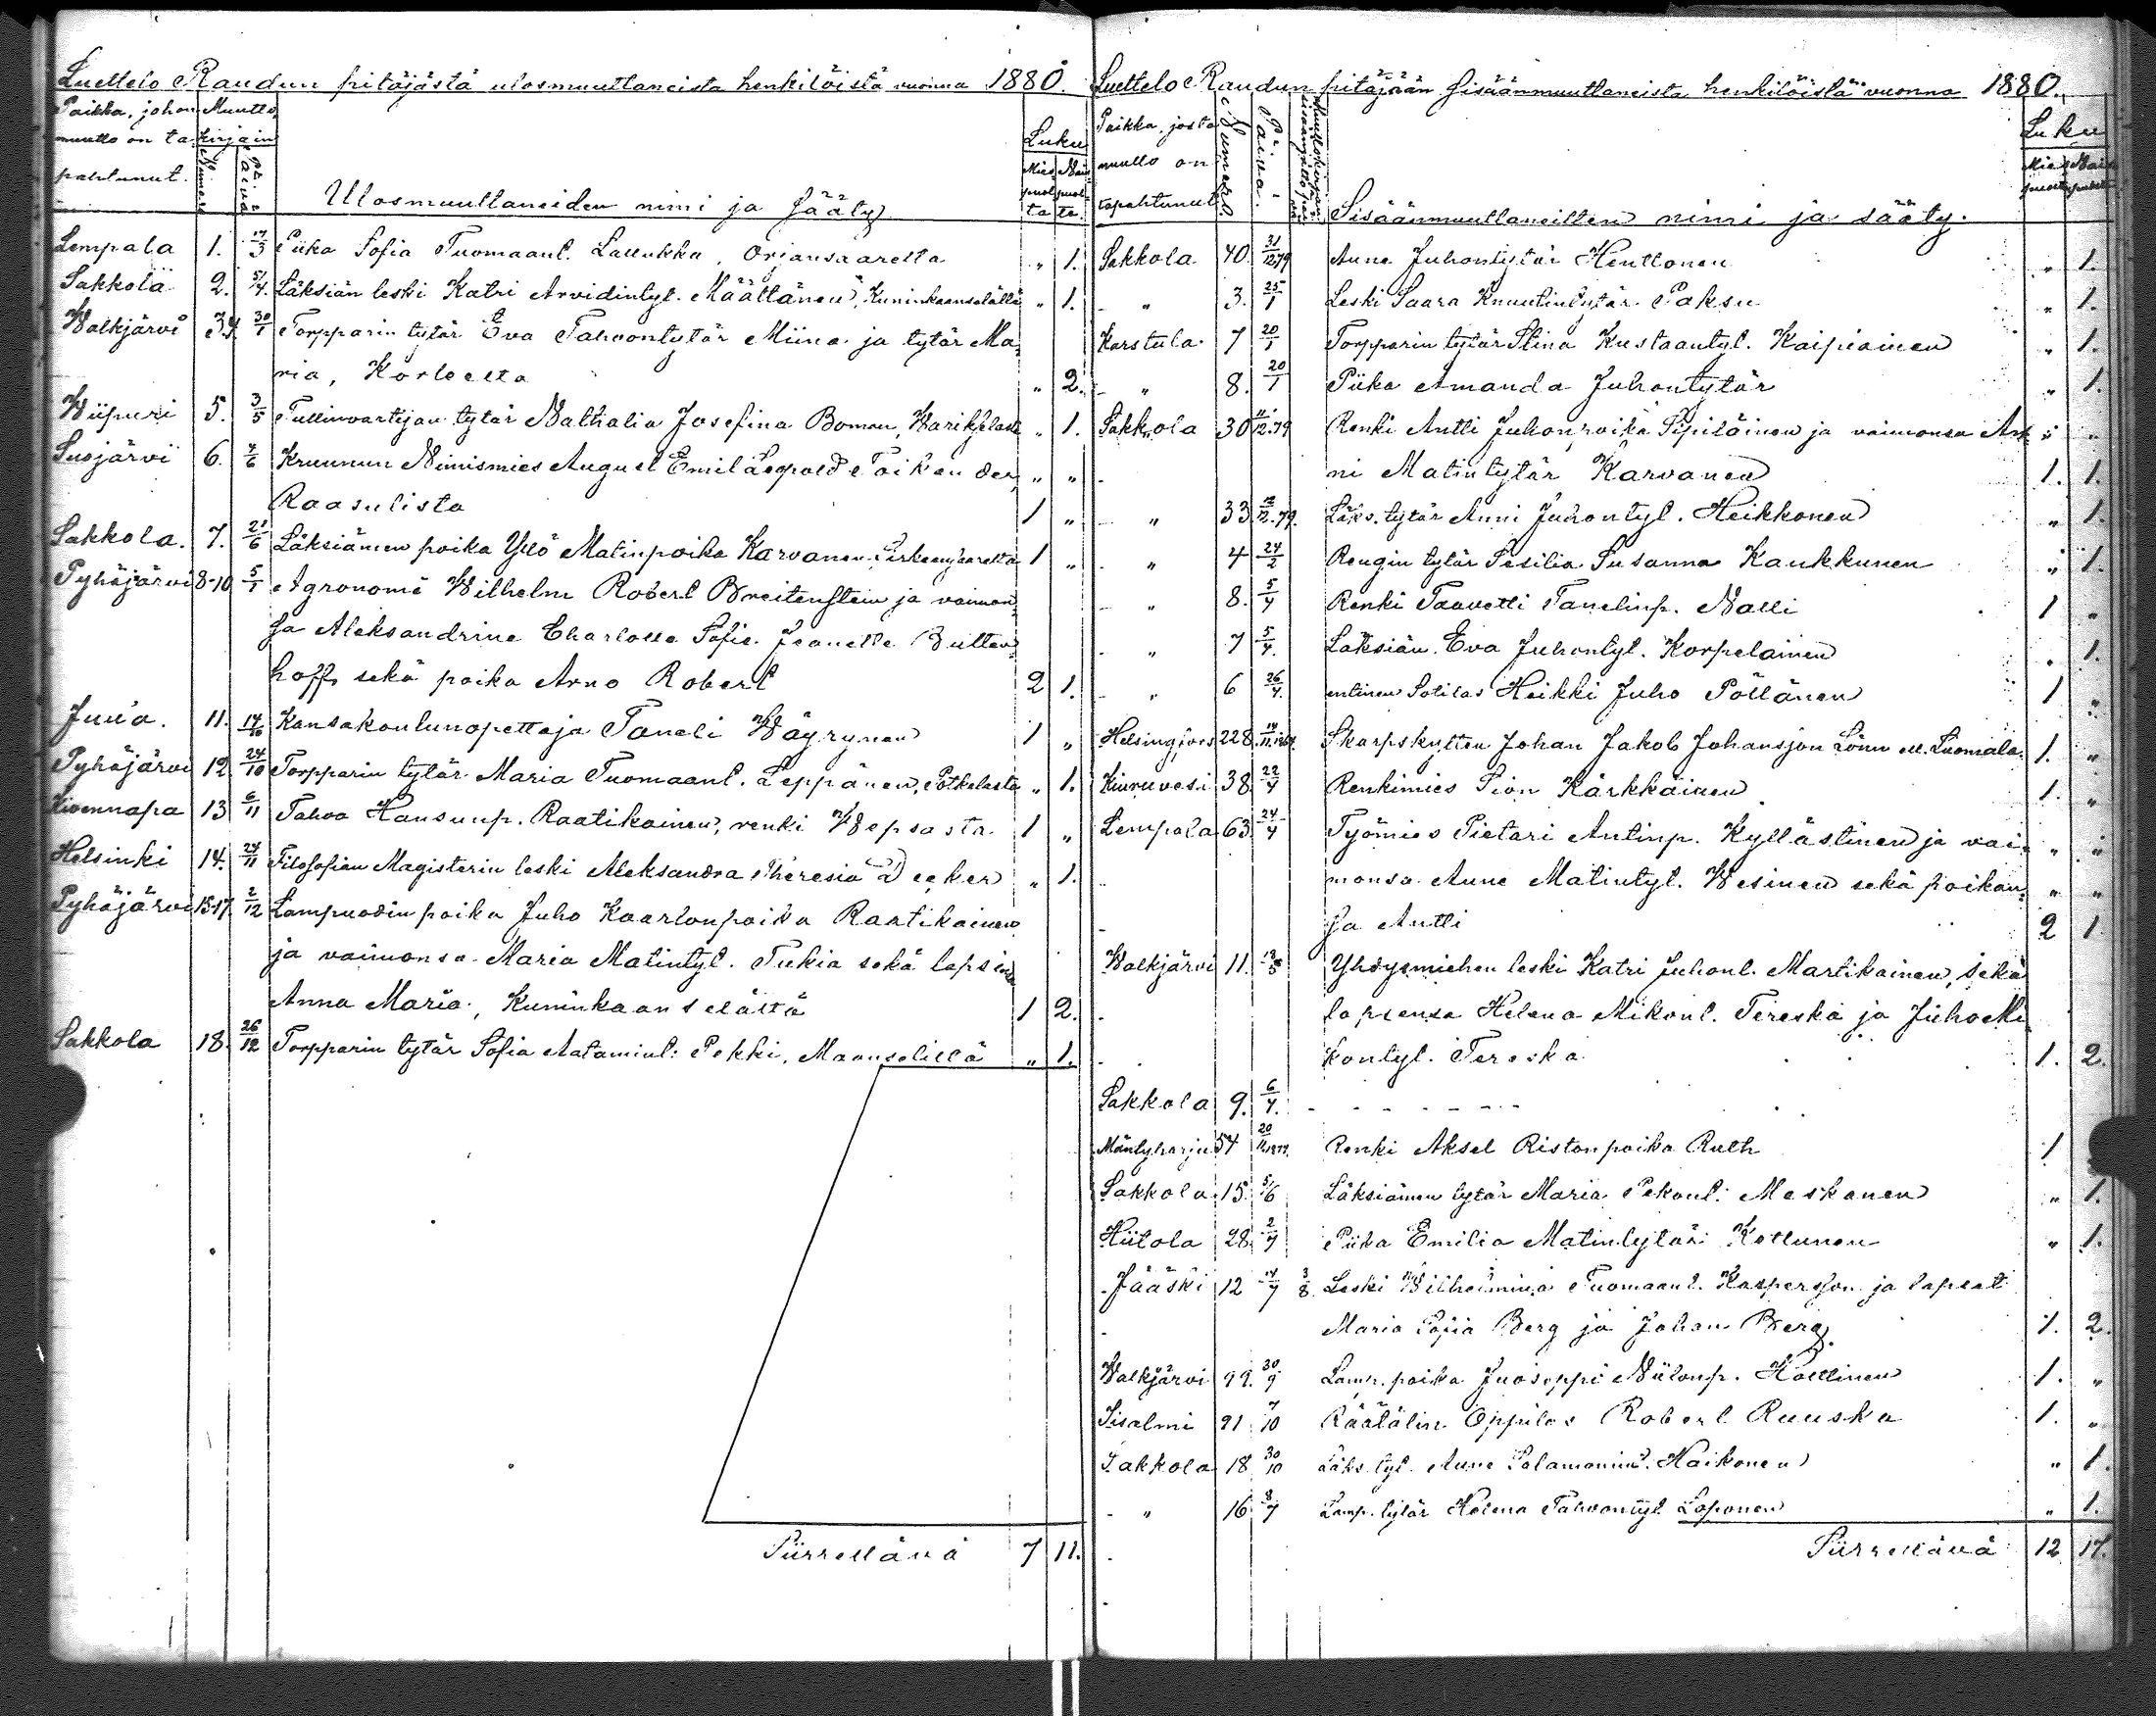 Luettelo Raudun pitäjästä ulosmuuttaneista henkilöistä vuonna 1880.
Paikka, johon muutto on tapahtunut.
Muuttokirjain
Numero
Päivä
Ulosmuuttaneiden nimi ja sääty
Luku
Mies puolta
Nais puolta
Lempala 1. 17/3 Piika Sofia Tuomaant. Lallukka, Orjansaarelta " 1.
Sakkola 2. 5/4. Läksiän leski Katri Arvidintyt. Määttänen, Kuninkaanselältä " 1.
Walkjärvi 3,4 30/1 Torpparin tytär Eva Tahvontytär Miina ja tytär Ma-
ria, Korleelta " 2.
Wiipuri 5. 3/5 Tullinvartijan tytär Nathalia Josefina Boman, " 1.
Suojärvi 6. 4/6 Kruunun Nimismies August Emil Leopold " "
Raasulista 1 "
Sakkola. 7. 21/6 Läksiämen poika Yrjö Matinpoika Karvanen 1 "
Pyhäjärvi 8-10 5/1 Agronomi Wilhelm Robert Breitenstein ja vaimon-
sa Aleksandrine Charlotte Sofie Jeanette
hoff, sekä poika Arno Robert 2 1.
Juua. 11. 14/10 Kansakoulunopettaja Taneli Wäyrynen 1 "
Pyhäjärvi 12 24/10 Torpparin tytär Maria Tuomaant. Leppänen, Potkelasta " 1.
Kivennapa 13 6/11 Tahvo Hansunp. Raatikainen, renki Wepsasta 1 "
Helsinki 14. 24/11 Filosofian Magisterin leski Aleksandra Theresia Decker " 1.
Pyhäjärvi 15-17 2/12 Lampuodin poika Juho Kaarlonpoika Raatikainen
ja vaimonsa Maria Matintyt. Tukia sekä lapsi
Anna Maria, Kuninkaanselältä 1 2.
Sakkola 18. 26/12 Torpparin tytär Sofia Aatamint. Pekki, Maanselältä " 1.
Siirrettävä 7 11.
Luettelo Raudun pitäjään sisäänmuuttaneista henkilöistä vuonna 1880.
Paikka, josta muutto on tapahtunut
Numero
Päivä.
Sisäänmuuttaneitten nimi ja sääty.
Luku
Mies puolta
Nais puolta
Sakkola 40. 31/12.79 Anna Juhontytär Henttonen " 1.
" 3. 25/1 Leski Saara Knuutintytär Paksu " 1.
Karstula 7 20/1 Torpparin tytär Stina Kustaantyt. Kaipiainen " 1.
" 8. 20/1 Piika Amanda Juhontytär " 1.
Sakkola 30 11/12.79 Renki Antti Juhonpoika Pipiläinen ja vaimonsa An- " "
ni Matintytär Karvanen 1. 1.
" 33 12/12.79. Läks. tytär Anni Juhontyt. Heikkonen " 1.
" 4 24/2 Rengin tytär Sesilia Susanna Kaukkunen " 1.
" 8. 5/4 Renki Taavetti Tanelinp. Nalli 1 "
" 7 5/4. Läksiän. Eva Juhontyt. Korpelainen " 1.
" 6 26/4. entinen Sotilas Heikki Juho Pöllänen 1 "
Helsingfors 228. Skarpskytten Johan Jakob Johansson Lönn 1. "
Kiuruvesi 38. 22/4 Renkimies Sion Kärkkäinen 1. "
Lempala 63. 24/4 Työmies Pietari Antinp. Kyllästinen ja vai- " "
monsa Anne Matintyt. Wesinen sekä poikan- " "
sa Antti 2 1
Walkjärvi 11. Yhdysmiehen leski Katri Juhont. Martikainen, sekä
lapsensa Helena Mikont. Tereska ja Juho Mi
kontyt. Tereska 1. 2.
Sakkola 9. 6/4. - - - - - - -
Mäntyharju 54 Renki Aksel Ristonpoika Ruth 1
Sakkola 15. 5/6 Läksiämen tytär Maria Pekont. Meskanen " 1.
Hiitola 28. 2/7 Piika Emilia Matintytär Kottunen " 1.
Jääski 12 14/7 3/8. Leski Wilhelmina Tuomaant. Kaspersson ja lapset
Maria Sofia Berg ja Johan Berg. 1. 2.
Walkjärvi 99. 30/9 Lamp. poika Juoseppi Niilonp. Hottinen 1. "
Iisalmi 91 7/10 Räätälin Oppilas Robert Ruuska 1. "
Sakkola 18 30/10 Läks. tyt. Anna Salamonint. Haikonen " 1.
" 16 8/7 Lamp. tytär Helena Tahvontyt. Loponen " 1.
Siirrettävä 12 17.